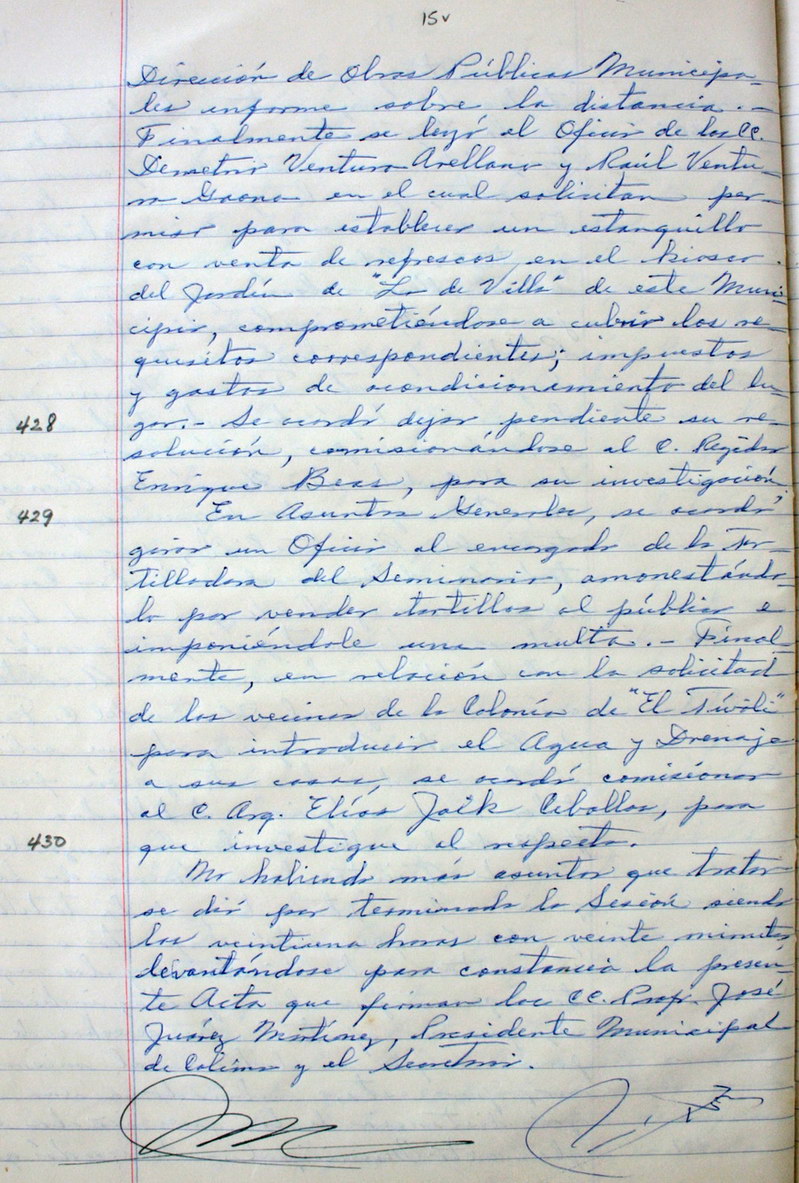 15v
Dirección de Obras Públicas Municipa-
les informe sobre la distancia.-
Finalmente se leyó el Oficio de los CC.
Demetrio Ventura Arellano y Raúl Ventu-
ra Gaona en el cual solicitan per-
miso para establecer un estanquillo
con venta de refrescos, en el kiosco
del Jardín de "La de Villa" de este Muni-
cipio, comprometiéndose a cubrir los re-
quisitos correspondientes; impuestos
y gastos de acondicionamiento del lu-
428 gar.- Se acordó dejar pendiente su re-
solución, comisionándose al C. Regidor
Enrique Beas, para su investigación.
429 En Asuntos Generales, se acordó
girar un Oficio al encargado de la Tor-
tilladora del Seminario, amonestándo-
lo por vender tortillas al público e
imponiéndole una multa.- Final-
mente, en relación con la solicitud
de los vecinos de la Colonia de "El Tívoli"
para introducir el Agua y Drenaje
a sus casas, se acordó comisionar
al C. Arq. Elías Ceballos, para
430 que investigue al respecto.
No habiendo más asuntos que tratar
se dió por terminada la Sesión siendo
las veintiuna horas con veinte minutos,
levantándose para constancia la presen-
te Acta que firman los CC. Prof. José
Juárez Martínez, Presidente Municipal
de Colima y el Secretario.